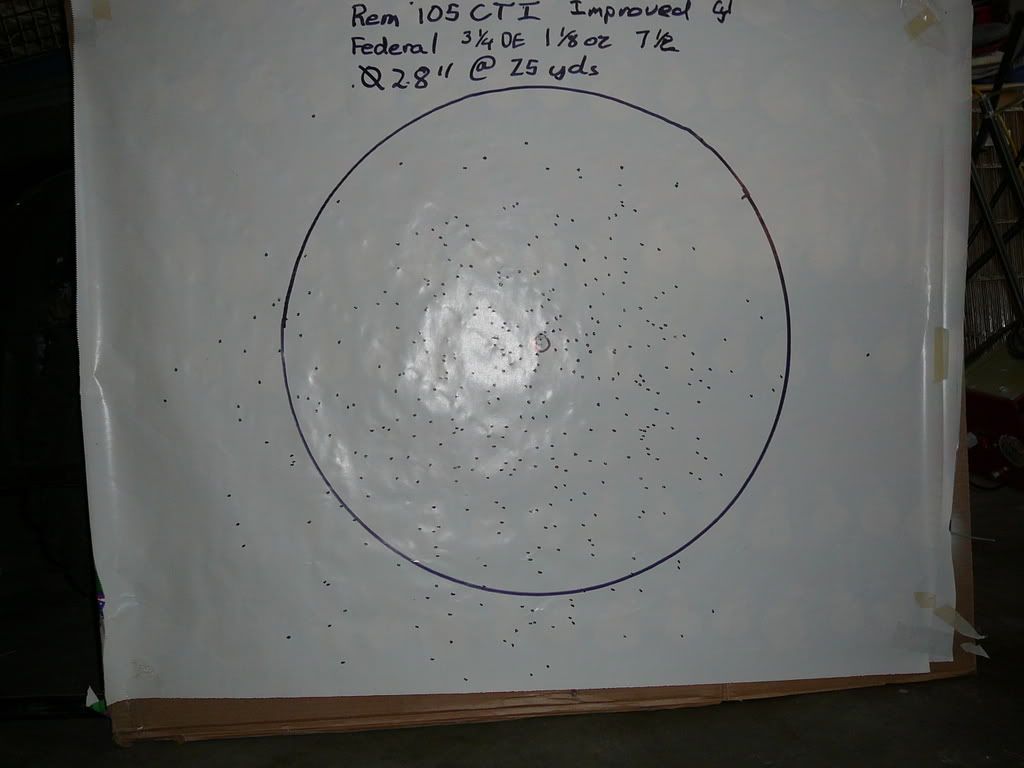 Rem 105 CTI Improved Cyl
Federal 3 1/4 DE 1 1/8 oz 7 1/2
28" @ 25 yds